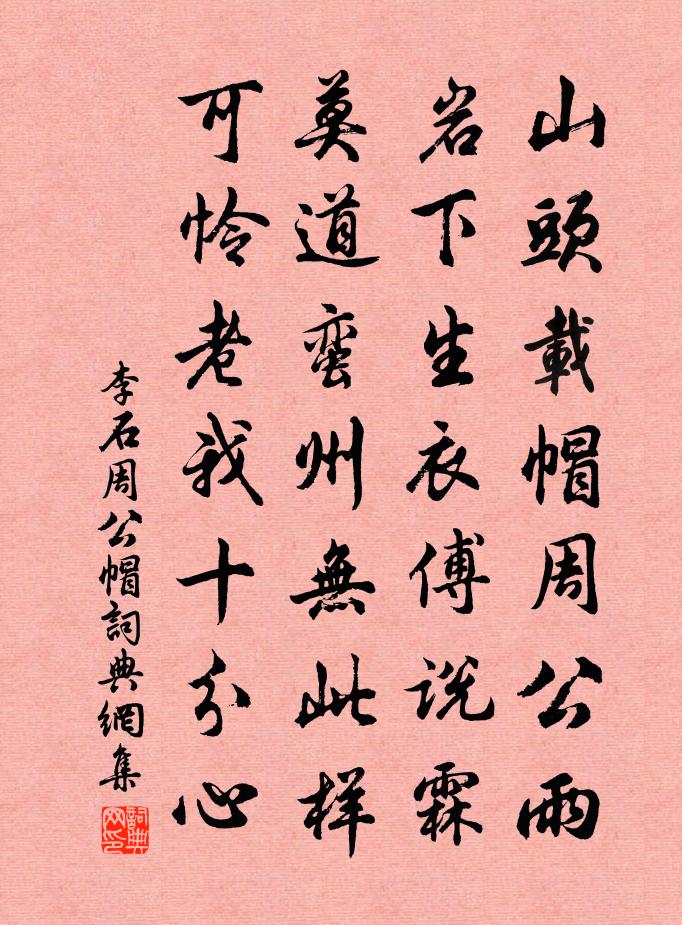 山頭載帽周公雨
岩下生衣傅说霖
莫道蛮州無此样
可怜老我十分心
李石周公帽詞典網集
詞典网印